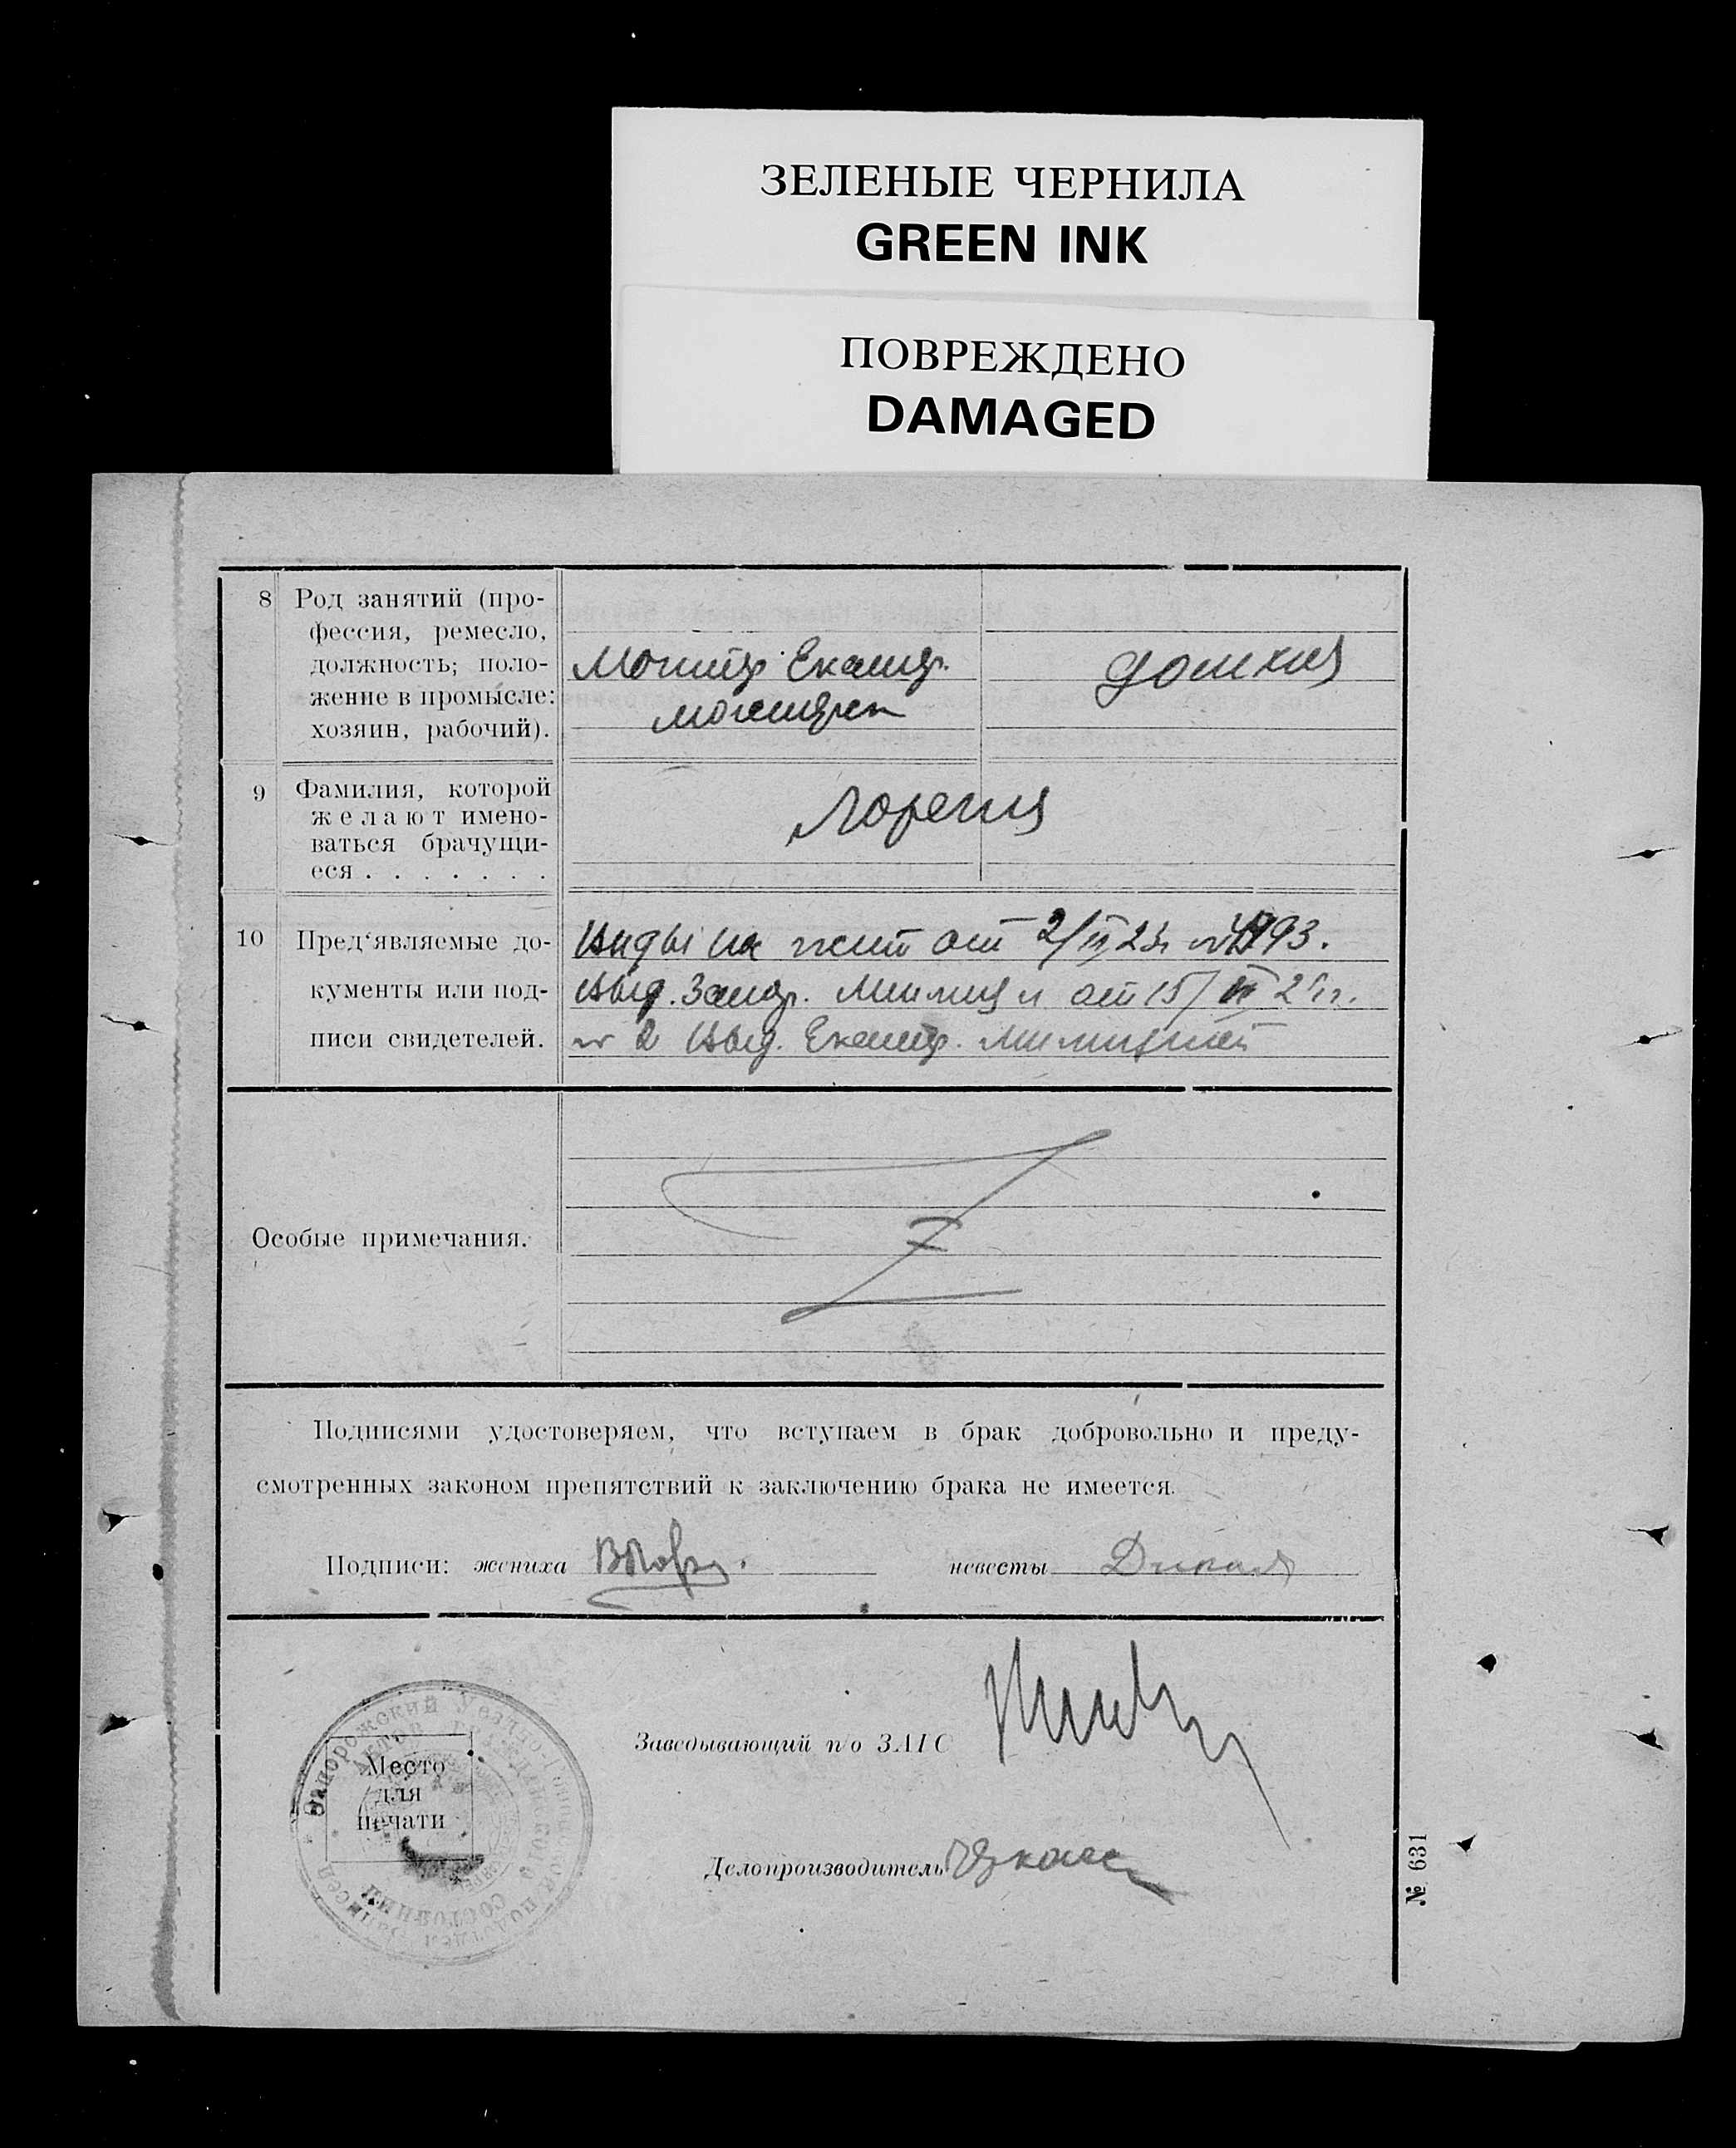 ЗЕЛЕНЫЕ ЧЕРНИЛА
GREEN INK
ПОВРЕЖДЕНО
DAMAGED
8 Род занятий (про-
фессия, ремесло,
должность; поло-
жение в промысле:
хозяин, рабочий).
Екатер.
9 Фамилия, которой
желают имено-
ваться брачущи-
еся . . . . . . .
Лоренц
10 Пред‘являемые до-
кументы или под-
писи свидетелей.
Виды на жит от 2/ 23г 4993.
Выд. Запор. Милиц и от 15/
№ 2 Выд. Екатер. Милицией
Особые примечания.
Подписями удостоверяем, что вступаем в брак добровольно и преду-
смотренных законом препятствий к заключению брака не имеется.
Подписи: жениха невесты Дикая
Заведывающий п/о ЗАГС
Место
для
печати
Запорожский
состояния
Делопроизводитель
№ 631